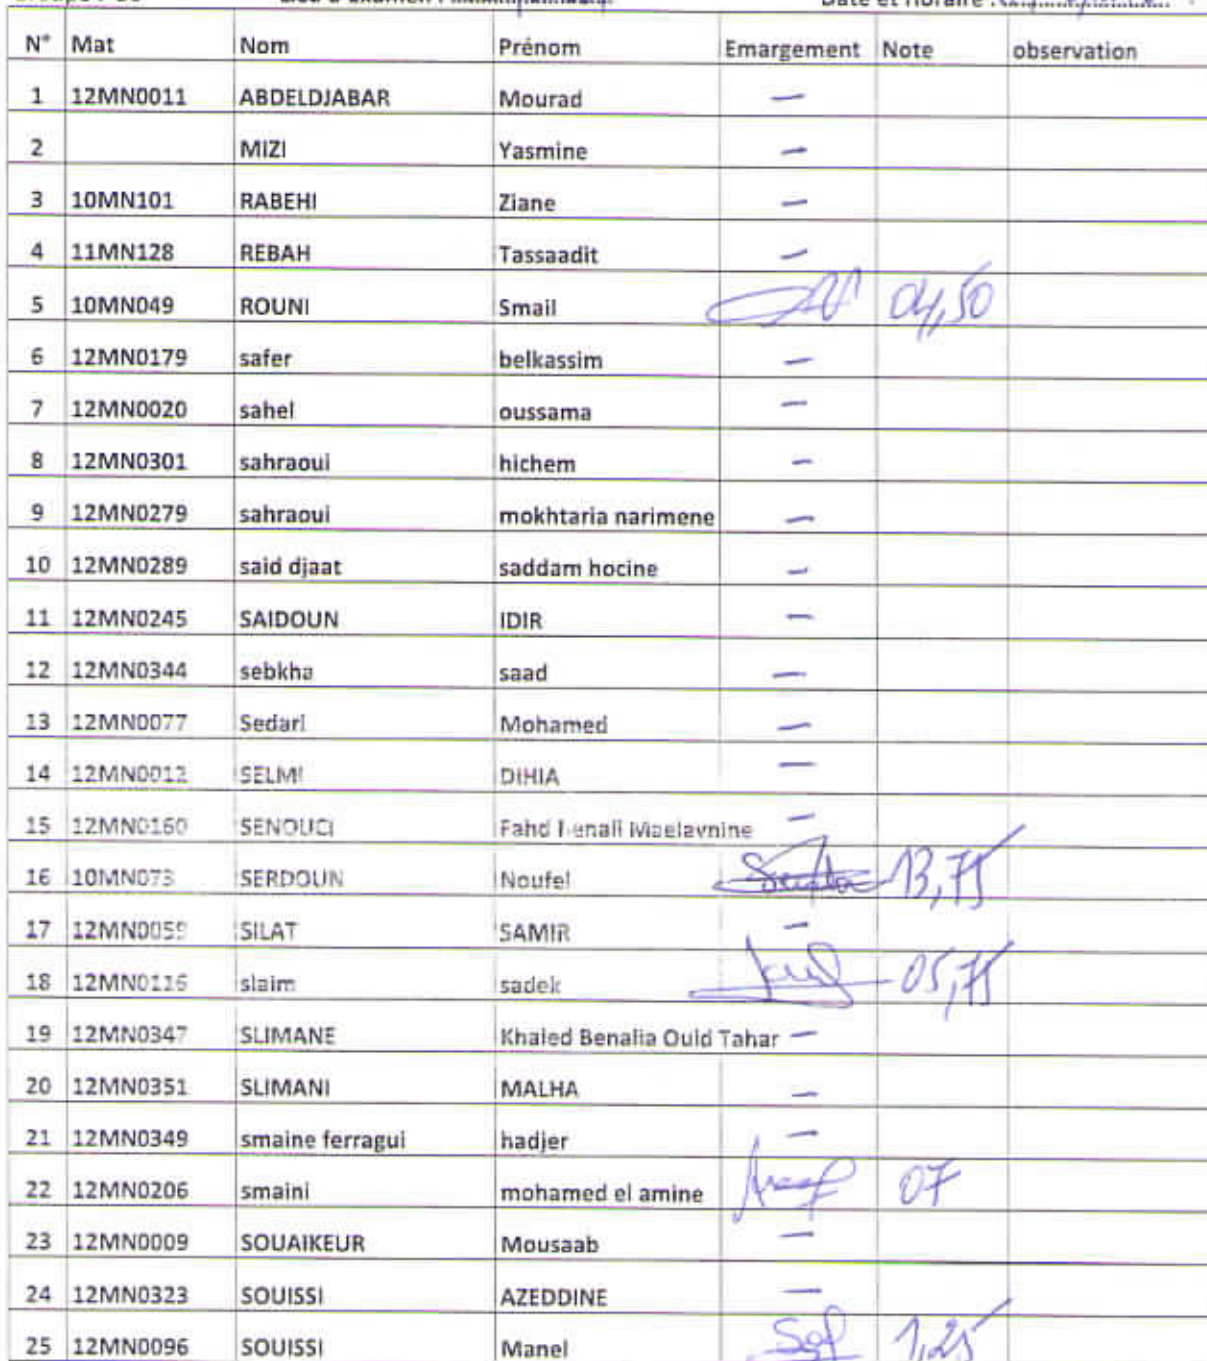 N° Mat Nom Prénom Emargement Note observation
1 12MN0011 ABDELDJABAR Mourad —
2 MIZI Yasmine —
3 10MN101 RABEHI Ziane —
4 11MN128 REBAH Tassaadit —
5 10MN049 ROUNI Smail 04,50
6 12MN0179 safer belkassim —
7 12MN0020 sahel oussama —
8 12MN0301 sahraoui hichem —
9 12MN0279 sahraoui mokhtaria narimene —
10 12MN0289 said djaat saddam hocine —
11 12MN0245 SAIDOUN IDIR —
12 12MN0344 sebkha saad —
13 12MN0077 Sedari Mohamed —
14 12MN0012 SELMI DIHIA —
15 12MN0160 SENOUCI Fahd —
16 10MN073 SERDOUN Noufel 13,75
17 12MN0059 SILAT SAMIR —
18 12MN0116 slaim sadek 05,75
19 12MN0347 SLIMANE Khaled Benalia Ould Tahar —
20 12MN0351 SLIMANI MALHA —
21 12MN0349 smaine ferragui hadjer —
22 12MN0206 smaini mohamed el amine 07
23 12MN0009 SOUAIKEUR Mousaab —
24 12MN0323 SOUISSI AZEDDINE —
25 12MN0096 SOUISSI Manel 1,25